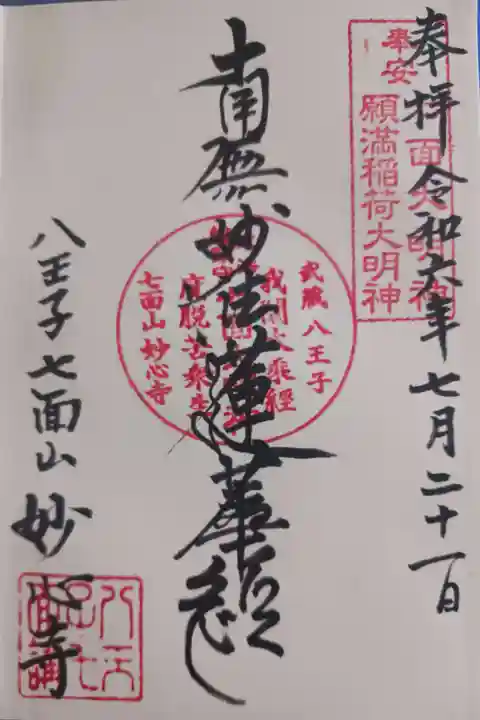 奉拝 令和六年七月二十一日
奉安
七面大明神
願満稲荷大明神
南無妙法蓮華経
武蔵八王子
我闡大乗経
度脱苦衆生
七面山妙心寺
八王子七面山 妙心寺